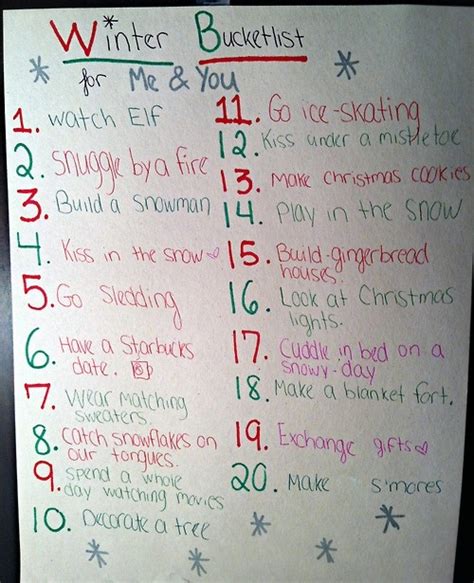 Winter Bucketlist
for Me & You
1. watch Elf
2. snuggle by a fire
3. Build a Snowman
4. Kiss in the snow
5. Go Sledding
6. Have a Starbucks
date.
7. Wear matching
sweaters.
8. catch snowflakes on
our tongues.
9. spend a whole
day watching movies
10. Decorate a tree
11. Go ice-skating
12. Kiss under a mistletoe
13. Make christmas cookies
14. Play in the snow
15. Build-gingerbread
houses.
16. Look at Christmas
lights.
17. Cuddle in bed on a
snowy-day
18. Make a blanket fort.
19. Exchange gifts
20. Make s'mores